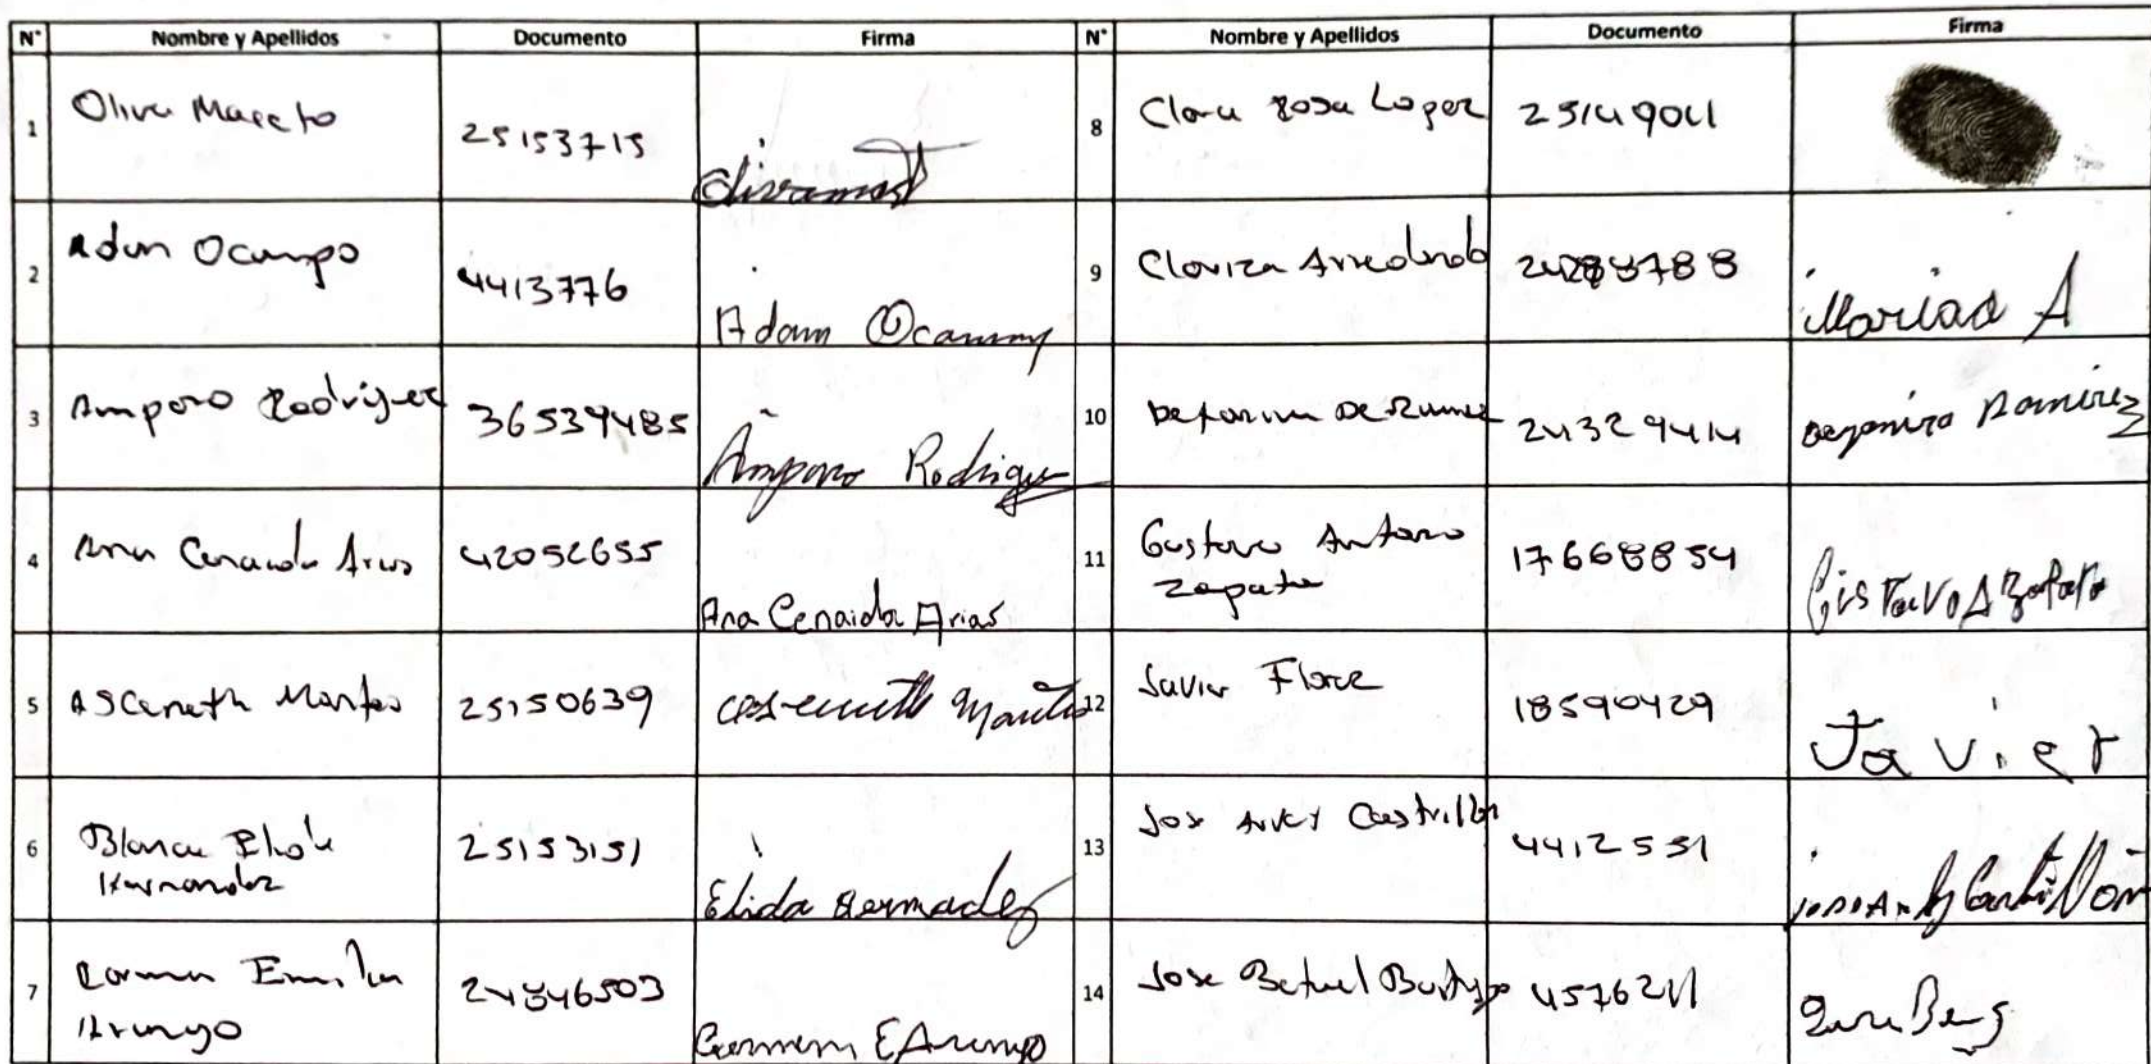 N° Nombre y Apellidos Documento Firma N° Nombre y Apellidos Documento Firma
1 Oliva 25153715 8 Clara Rosa Lopez 25149041
2 Adan Ocampo 4413776 Adam Ocamp 9 Clariza 788 Marias A
3 Amparo Rodriguez 36539485 Amparo Rodrigue 10 243294414 Deyanira Ramirez
4 Ana Cenaida Arias 42052655 Ana Cenaida Arias 11 Gustavo Antonio
Zapata 17668854 GisTavo A Zapata
5 Asceneth Montes 25150639 12 Javier Florez 18590429 Javier
6 Blanca Elida
Hernandez 25153151 Elida 13 Jose Arvey Castrillon 4412551
7 Carmen Emilia
Arango 24846503 Carmen E Arango 14 Jose Betuel 4576211